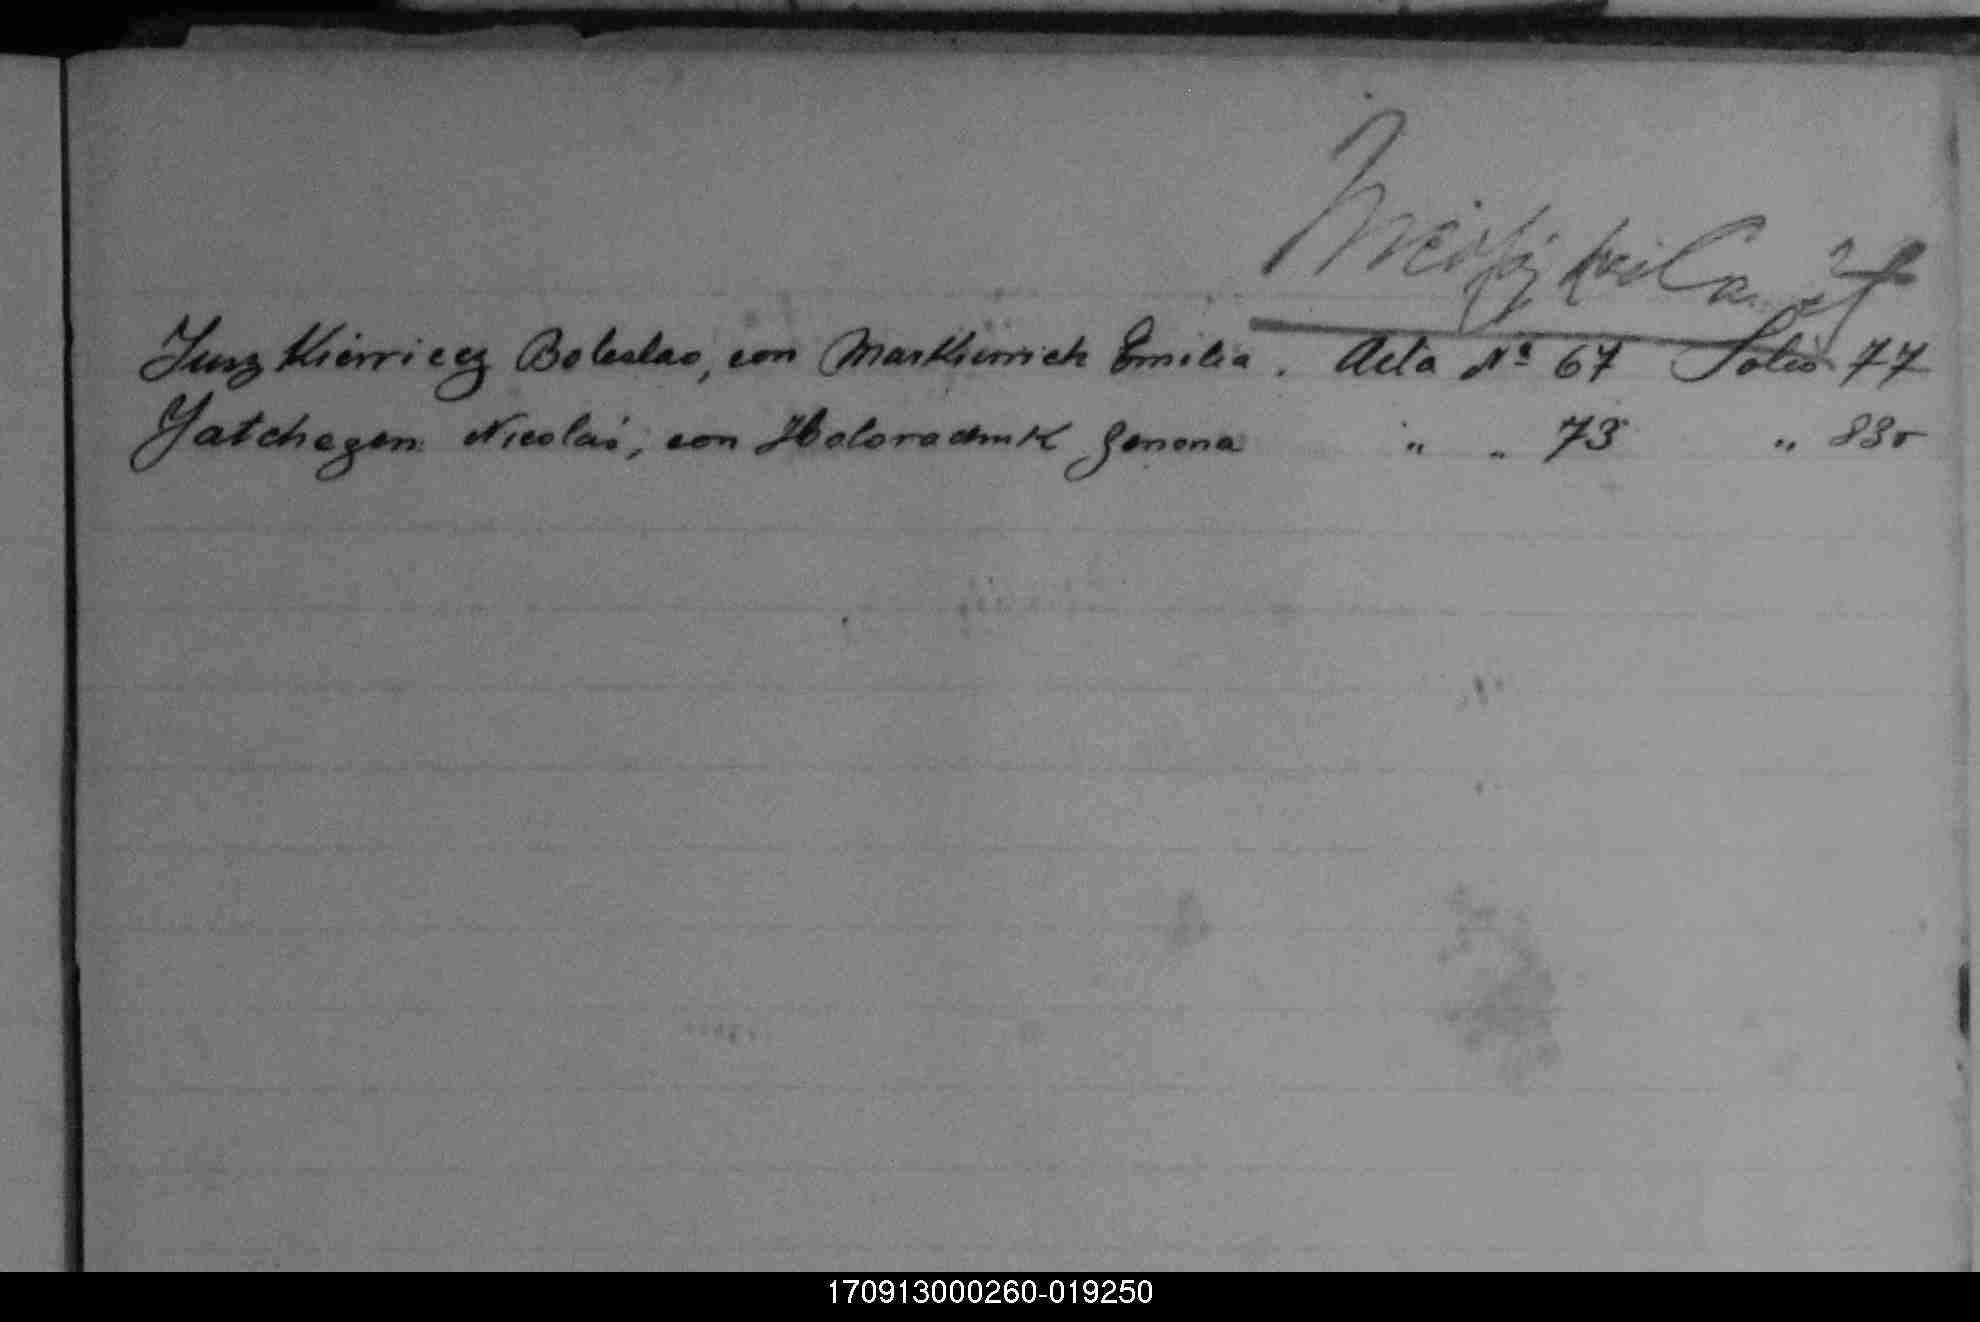 Juszkiewiecz Boleslao, con Markiewich Emilia. Acta Nº 67 Folio 77
Yatchegen Nicolás, con Holoradnuk Genena " " 73 " 83v
170913000260-019250